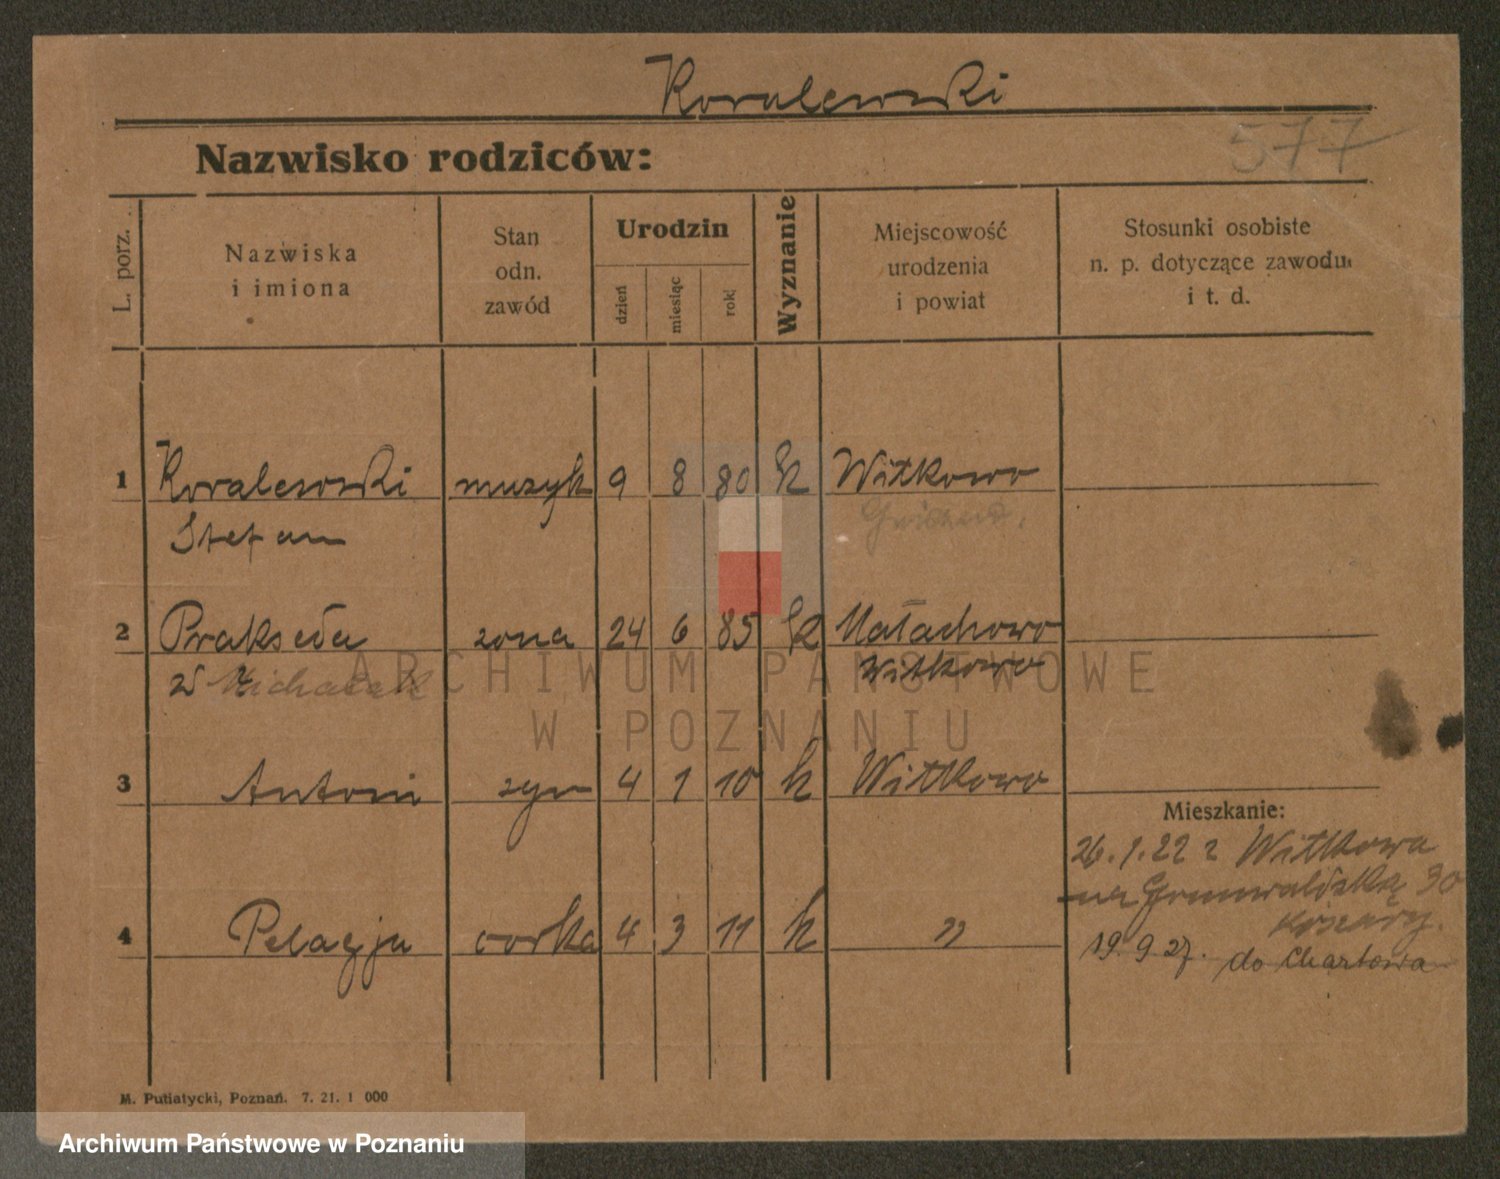 Koralewski
577
Nazwisko rodziców:
L. porz.
Nazwiska
i imiona
Stan
odn.
zawód
Urodzin
dzień
miesiąc
rok
Wyznanie
Miejscowość
urodzenia
i powiat
Stosunki osobiste
n. p. dotyczące zawodu
i t. d.
1 Koralewski muzyk 9 8 80 k Witkowo
Stefan
2 Prakseda zona 24 6 85 k Małachowo
z Michalak Witkowo
3 Antoni syn 4 1 10 k Wittkowo
Mieszkanie:
26.1.22 z Wittkowa
Grunwaldzką 30
koszary.
4 Pelagja corka 4 3 11 k "
19.9.27. do Chartowa
M. Putiatycki, Poznań. 7. 21. 1 000
ARCHIWUM PAŃSTWOWE
W POZNANIU
Archiwum Państwowe w Poznaniu